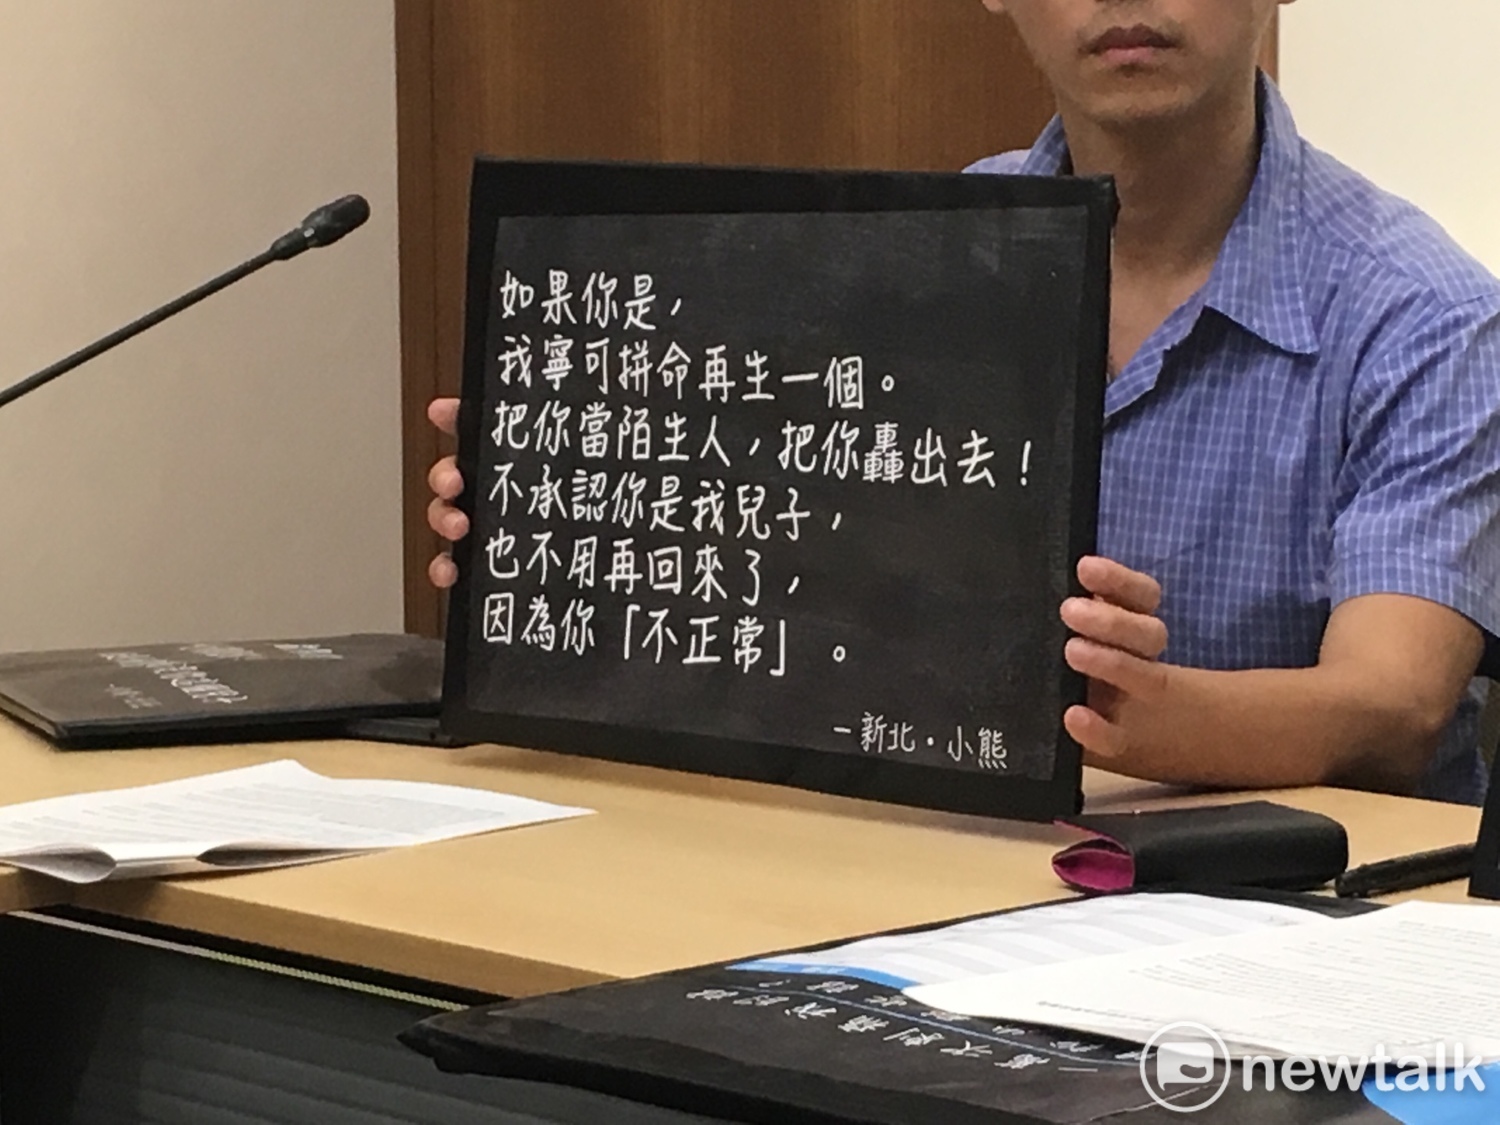 如果你是，
我寧可拼命再生一個。
把你當陌生人，把你轟出去！
不承認你是我兒子，
也不用再回來了，
因為你「不正常」。
－新北・小熊
newtalk